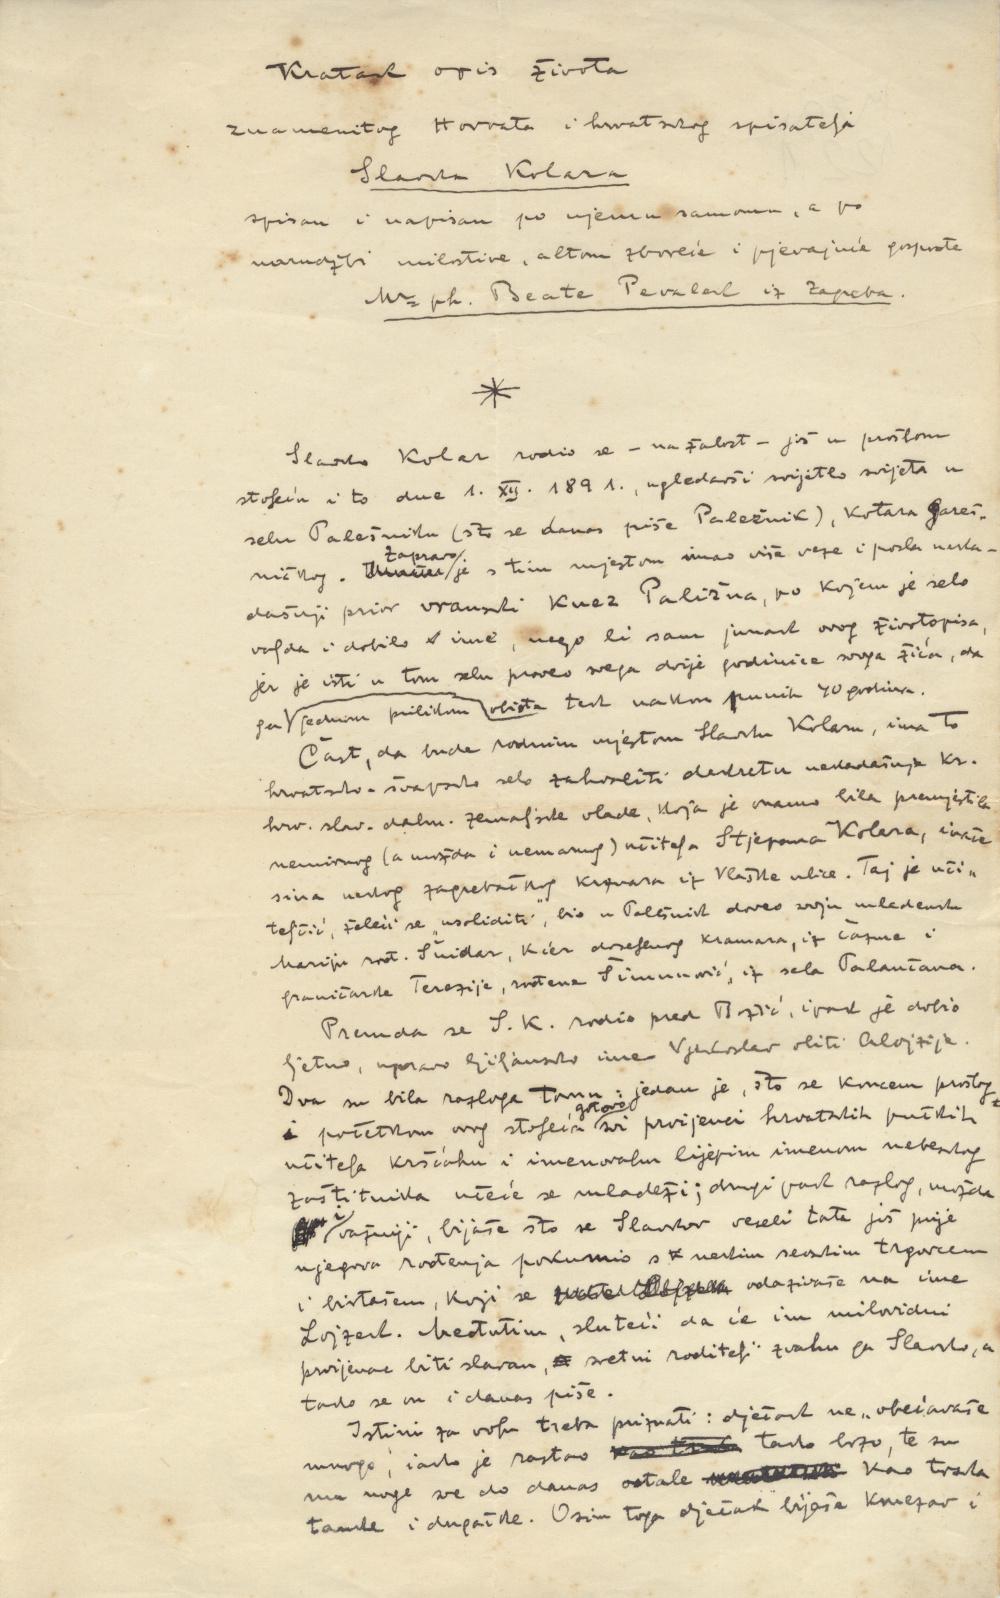 Kratak opis života
znamenitog Horvata i hrvatskog spisatelja
Slavka Kolara
spisan i napisan po njemu samomu, a po
narudžbi milostive, altom zboreće i pjevajuće gospođe
Mr ph. Beate Pevalek iz Zagreba.
*
Slavko Kolar rodio se – na žalost – još u prošlom
stoljeću i to dne 1. XII. 1891., ugledavši svijetlo svijeta u
selu Palešniku (što se danas piše Paležnik), kotara gareš-
ničkog. Zapravo je s tim mjestom imao više veze i posla neka-
dašnji prior vranski knez Paližna, po kojem je selo
valjda i dobilo ime, nego li sam junak ovog životopisa,
jer je isti u tom selu proveo svega dvije godinice svoga žića, da
ga jednom prilikom obiđa tek nakon punih 40 godina.
Čast, da bude rodnim mjestom Slavku Kolaru, ima to
hrvatsko-švapsko selo zahvaliti dekretu nekadašnje kr.
hrv. slav. dalm. zemaljske vlade, koja je onamo bila premjestila
nemirnog (a možda i nemarnog) učitelja Stjepana Kolara, inače
sina nekog zagrebačkog krznara iz Vlaške ulice. Taj je uči-
teljčić, želeći se „usoliditi", bio u Palešnik doveo svoju mladenku
Mariju rođ. Šnidar, kćer doseljenog kramara, iz Čazme i
graničarke Terezije, rođene Šimunović, iz sela Palančana.
Premda se S. K. rodio pred Božić, ipak je dobio
ljetno, upravo ljiljansko ime Vjekoslav oliti Alojzije.
Dva su bila razloga tomu: jedan je, što se koncem prošlog
i početkom ovog stoljeća gotovo svi prvijenci hrvatskih pučkih
učitelja kršćahu i imenovahu lijepim imenom nebeskog
zaštitnika učeće se mladeži; drugi pak razlog, možda
i važniji, bijaše što se Slavkov veseli tata još prije
njegova rođenja pokumio s nekim seoskim trgovcem
i birtašem, koji se odazivaše na ime
Lojzek. Međutim, sluteći da će im milovidni
prvijenac biti slavan, sretni roditelji zvahu ga Slavko, a
tako se on i danas piše.
Istini za volju treba priznati: dječak ne „obećavaše
mnogo", iako je rastao tako brzo, te su
mu noge sve do danas ostale kao trska
tanke i dugačke. Osim toga dječak bijaše kmezav i